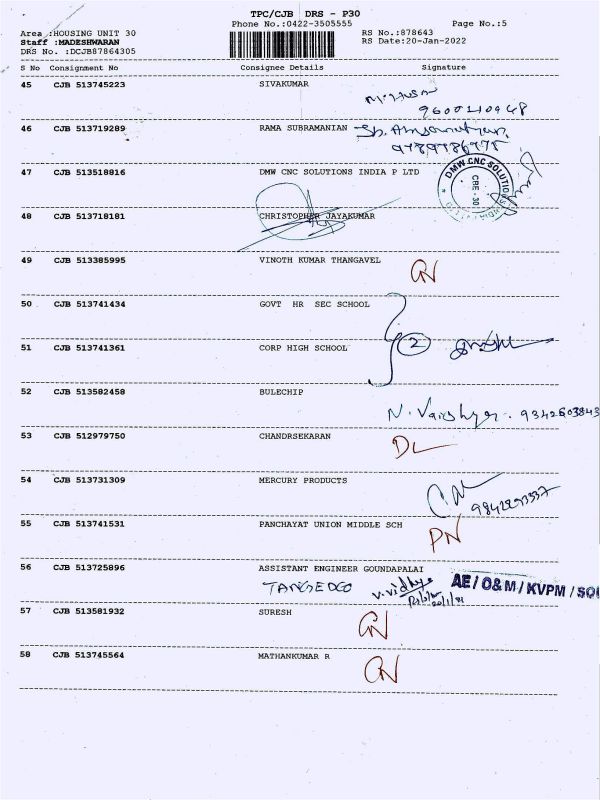 TPC/CJB DRS - P30
Phone No.:0422-3505555
Page No.:5
Area :HOUSING UNIT 30
RS No.:878643
Staff :MADESHWARAN
RS Date:20-Jan-2022
DRS No. :DCJB87864305
S No Consignment No Consignee Details Signature
45 CJB 513745223 SIVAKUMAR
46 CJB 513719289 RAMA SUBRAMANIAN
47 CJB 513518816 DMW CNC SOLUTIONS INDIA P LTD
DMW CNC SOLUTIONS
CBE - 30
48 CJB 513718181 CHRISTOPHER JAYAKUMAR
49 CJB 513385995 VINOTH KUMAR THANGAVEL
50 CJB 513741434 GOVT HR SEC SCHOOL
51 CJB 513741361 CORP HIGH SCHOOL
2
52 CJB 513582458 BULECHIP
53 CJB 512979750 CHANDRSEKARAN
DL
54 CJB 513731309 MERCURY PRODUCTS
55 CJB 513741531 PANCHAYAT UNION MIDDLE SCH
PN
56 CJB 513725896 ASSISTANT ENGINEER GOUNDAPALAI
TANGEDCO V. Vidhya
AE / O&M / KVPM / SOU
57 CJB 513581932 SURESH
58 CJB 513745564 MATHANKUMAR R